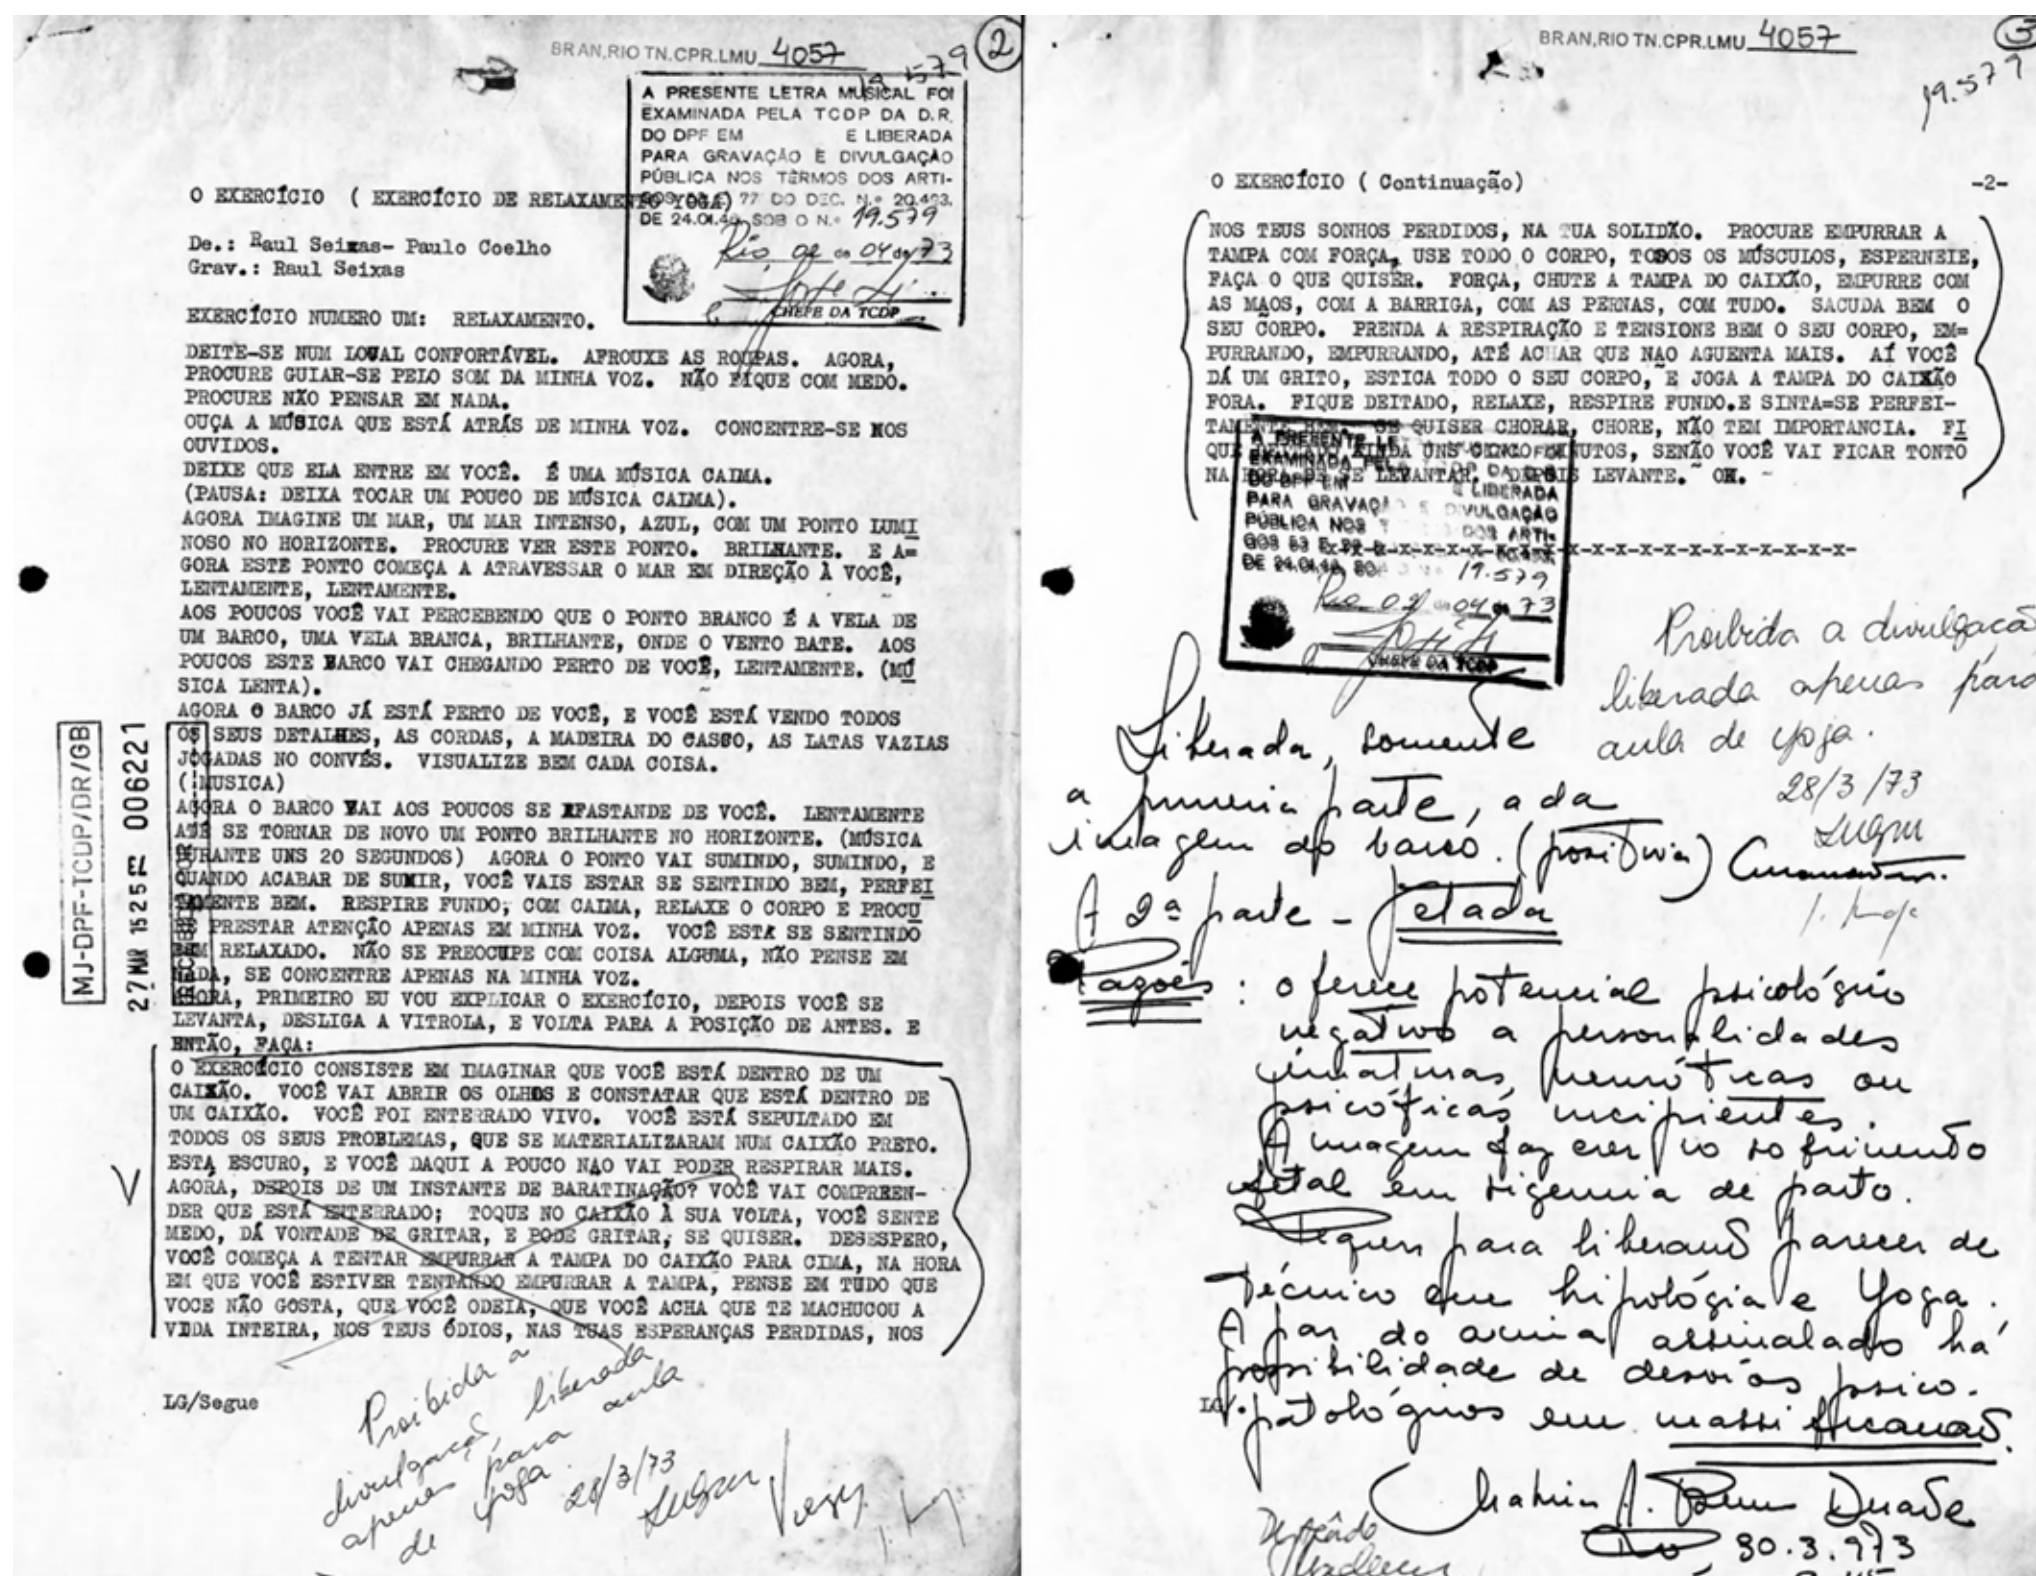 BRAN,RIO TN.CPR.LMU 4057
19.579
2
A PRESENTE LETRA MUSICAL FOI
EXAMINADA PELA TCDP DA D.R.
DO DPF EM E LIBERADA
PARA GRAVAÇÃO E DIVULGAÇÃO
PÚBLICA NOS TÊRMOS DOS ARTI-
77 DO DEC. N.º 20.493,
DE 24.01.46, SOB O N.º 19.579
Rio, 02 de 04 de 73
CHEFE DA TCDP
O EXERCÍCIO ( EXERCÍCIO DE RELAXAMENTO YOGA)
De.: Raul Seixas- Paulo Coelho
Grav.: Raul Seixas
EXERCÍCIO NUMERO UM: RELAXAMENTO.
DEITE-SE NUM LOCAL CONFORTÁVEL. AFROUXE AS ROUPAS. AGORA,
PROCURE GUIAR-SE PELO SOM DA MINHA VOZ. NÃO FIQUE COM MEDO.
PROCURE NÃO PENSAR EM NADA.
OUÇA A MÚSICA QUE ESTÁ ATRÁS DE MINHA VOZ. CONCENTRE-SE NOS
OUVIDOS.
DEIXE QUE ELA ENTRE EM VOCÊ. É UMA MÚSICA CALMA.
(PAUSA: DEIXA TOCAR UM POUCO DE MÚSICA CALMA).
AGORA IMAGINE UM MAR, UM MAR INTENSO, AZUL, COM UM PONTO LUMI
NOSO NO HORIZONTE. PROCURE VER ESTE PONTO. BRILHANTE. E A=
GORA ESTE PONTO COMEÇA A ATRAVESSAR O MAR EM DIREÇÃO À VOCÊ,
LENTAMENTE, LENTAMENTE.
AOS POUCOS VOCÊ VAI PERCEBENDO QUE O PONTO BRANCO É A VELA DE
UM BARCO, UMA VELA BRANCA, BRILHANTE, ONDE O VENTO BATE. AOS
POUCOS ESTE BARCO VAI CHEGANDO PERTO DE VOCÊ, LENTAMENTE. (MÚ
SICA LENTA).
AGORA O BARCO JÁ ESTÁ PERTO DE VOCÊ, E VOCÊ ESTÁ VENDO TODOS
OS SEUS DETALHES, AS CORDAS, A MADEIRA DO CASCO, AS LATAS VAZIAS
JOGADAS NO CONVÉS. VISUALIZE BEM CADA COISA.
(MUSICA)
AGORA O BARCO VAI AOS POUCOS SE AFASTANDE DE VOCÊ. LENTAMENTE
ATÉ SE TORNAR DE NOVO UM PONTO BRILHANTE NO HORIZONTE. (MÚSICA
DURANTE UNS 20 SEGUNDOS) AGORA O PONTO VAI SUMINDO, SUMINDO, E
QUANDO ACABAR DE SUMIR, VOCÊ VAIS ESTAR SE SENTINDO BEM, PERFEI
TAMENTE BEM. RESPIRE FUNDO, COM CALMA, RELAXE O CORPO E PROCU
RE PRESTAR ATENÇÃO APENAS EM MINHA VOZ. VOCÊ ESTA SE SENTINDO
BEM RELAXADO. NÃO SE PREOCUPE COM COISA ALGUMA, NÃO PENSE EM
NADA, SE CONCENTRE APENAS NA MINHA VOZ.
AGORA, PRIMEIRO EU VOU EXPLICAR O EXERCÍCIO, DEPOIS VOCÊ SE
LEVANTA, DESLIGA A VITROLA, E VOLTA PARA A POSIÇÃO DE ANTES. E
ENTÃO, FAÇA:
O EXERCÍCIO CONSISTE EM IMAGINAR QUE VOCÊ ESTÁ DENTRO DE UM
CAIXÃO. VOCÊ VAI ABRIR OS OLHOS E CONSTATAR QUE ESTÁ DENTRO DE
UM CAIXÃO. VOCÊ FOI ENTERRADO VIVO. VOCÊ ESTÁ SEPULTADO EM
TODOS OS SEUS PROBLEMAS, QUE SE MATERIALIZARAM NUM CAIXÃO PRETO.
ESTÁ ESCURO, E VOCÊ DAQUI A POUCO NAO VAI PODER RESPIRAR MAIS.
AGORA, DEPOIS DE UM INSTANTE DE BARATINAÇÃO? VOCÊ VAI COMPREEN-
DER QUE ESTÁ ENTERRADO; TOQUE NO CAIXÃO À SUA VOLTA, VOCÊ SENTE
MEDO, DÁ VONTADE DE GRITAR, E PODE GRITAR, SE QUISER. DESESPERO,
VOCÊ COMEÇA A TENTAR EMPURRAR A TAMPA DO CAIXÃO PARA CIMA, NA HORA
EM QUE VOCÊ ESTIVER TENTANDO EMPURRAR A TAMPA, PENSE EM TUDO QUE
VOCE NÃO GOSTA, QUE VOCÊ ODEIA, QUE VOCÊ ACHA QUE TE MACHUCOU A
VIDA INTEIRA, NOS TEUS ÓDIOS, NAS TUAS ESPERANÇAS PERDIDAS, NOS
LG/Segue
MJ-DPF-TCDP/DR/GB
27 MAR 1525 006221
Proibida a
divulgação, liberada
apenas para aula
de yoga.
28/3/73
BRAN,RIO TN.CPR.LMU 4057
3
19.579
O EXERCÍCIO ( Continuação) -2-
NOS TEUS SONHOS PERDIDOS, NA TUA SOLIDÃO. PROCURE EMPURRAR A
TAMPA COM FORÇA, USE TODO O CORPO, TODOS OS MÚSCULOS, ESPERNEIE,
FAÇA O QUE QUISER. FORÇA, CHUTE A TAMPA DO CAIXÃO, EMPURRE COM
AS MAOS, COM A BARRIGA, COM AS PERNAS, COM TUDO. SACUDA BEM O
SEU CORPO. PRENDA A RESPIRAÇÃO E TENSIONE BEM O SEU CORPO, EM=
PURRANDO, EMPURRANDO, ATÉ ACHAR QUE NAO AGUENTA MAIS. AÍ VOCÊ
DÁ UM GRITO, ESTICA TODO O SEU CORPO, E JOGA A TAMPA DO CAIXÃO
FORA. FIQUE DEITADO, RELAXE, RESPIRE FUNDO.E SINTA=SE PERFEI-
TAMENTE BEM. SE QUISER CHORAR, CHORE, NÃO TEM IMPORTANCIA. FI
QUE AINDA UNS CINCO MINUTOS, SENÃO VOCÊ VAI FICAR TONTO
NA HORA DE SE LEVANTAR. DEPOIS LEVANTE. OK.
A PRESENTE LE
EXAMINADA PEL
DO DPF EM E LIBERADA
PARA GRAVAÇÃO E DIVULGAÇÃO
PÚBLICA NOS DOS ARTI-
DE 24.01.46, 19.579
Rio 02 de 04 de 73
CHEFE DA TCDP
-x-x-x-x-x-x-x-x-x-x-x-
Proibida a divulgação
liberada apenas para
aula de yoga.
28/3/73
Liberada, somente
a primeira parte, a da
imagem do barco. (positiva)
A 2ª parte - Vetada
Razões: oferece potencial psicológico
negativo a personalidades
imaturas, neuróticas ou
psicóticas incipientes.
A imagem faz crer no sofrimento
fetal em vigencia de parto.
Requer para liberação parecer de
técnico em hipnologia e Yoga.
A par do acima assinalado há
possibilidade de desvios psico-
patológicos em massificação.
LG
30.3.973